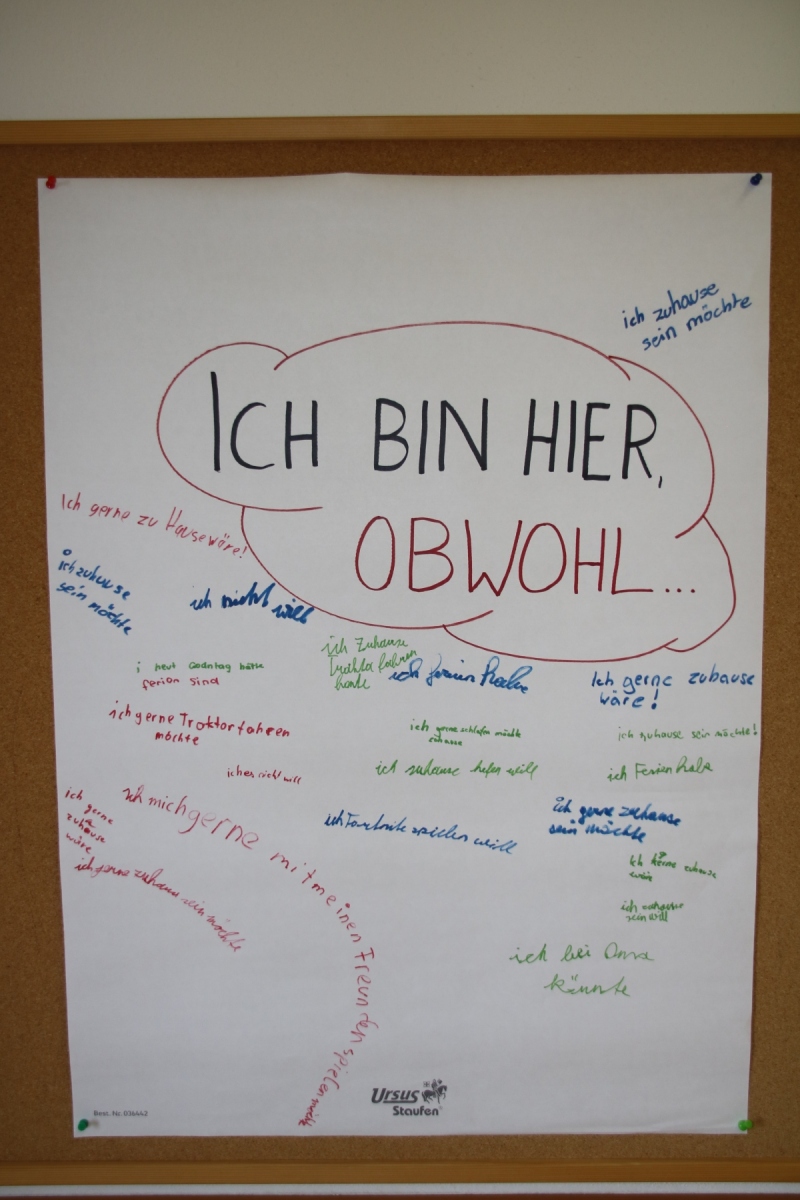 ich zuhause
sein möchte
ICH BIN HIER,
OBWOHL...
Ich gerne zu Hause wäre!
ich zuhause
sein möchte
ich nicht will
ich Zuhause
fahren
ich ferien habe
Ich gerne zuhause
wäre!
i heut
ferien sind
ich gerne Traktorfahren
möchte
ich gerne schlafen möchte
zuhause
ich zuhause sein möchte!
ich es nicht will
ich zuhause helfen will
ich Ferien habe
ich gerne
zuhause
wäre
ich mich gerne mit meinen Freunden spielen möchte
ich Fortnite spielen will
ich gerne zuhause
sein möchte
ich gerne zuhause sein möchte
ich gerne zuhause
wäre
ich zuhause
sein will
ich bei Oma
könnte
Best. Nr. 036442
Ursus
Staufen